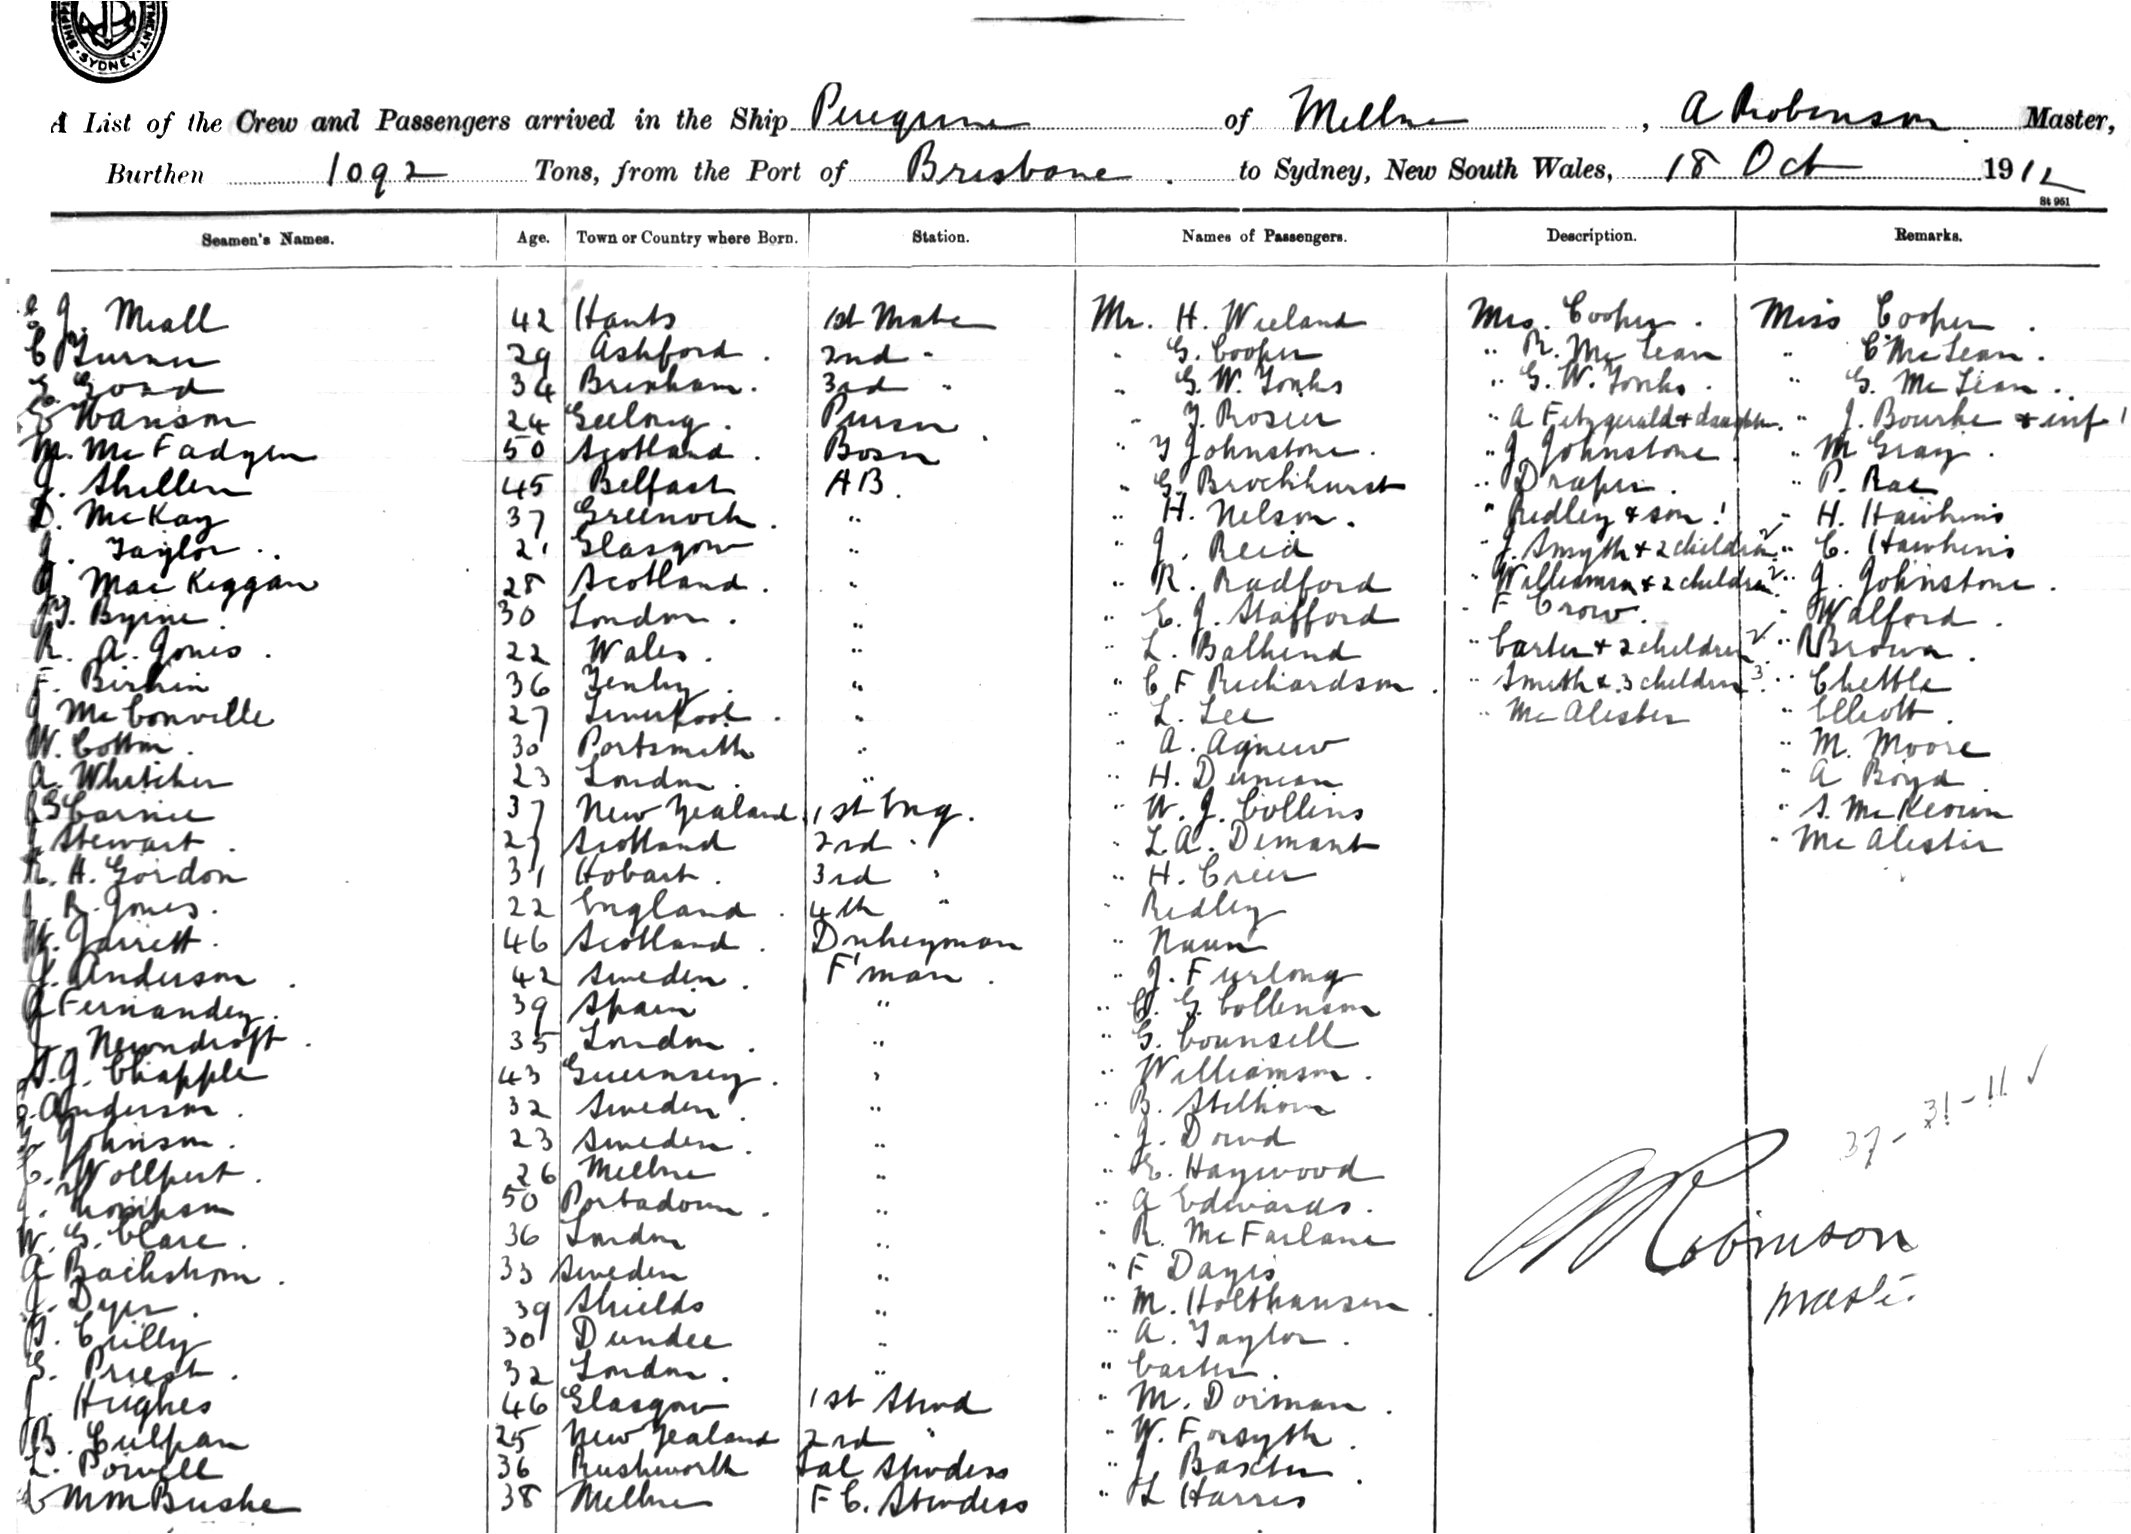 SHIP · SYDNEY · TMENT
A List of the Crew and Passengers arrived in the Ship Peregrine of Mellne, A Robinson Master,
Burthen 1092 Tons, from the Port of Brisbane. to Sydney, New South Wales, 18 Oct 1912
St 961
Seamen's Names. Age. Town or Country where Born. Station. Names of Passengers. Description. Remarks.
J. Miall 42 Hants 1st Mate Mr. H. Wieland Mrs. Cooper. Miss Cooper.
C Turner 29 Ashford. 2nd " " G. Cooper " R. McLean " C McLean.
G Goad 34 Brixham. 3rd " " G. W. Tonks " G. W. Tonks. " G. McLean.
Hanson 24 Geelong. Purser " J. Rosier " A Fitzgerald & daughter. " J. Bourke & inf 1
M. McFadyen 50 Scotland. Bosn " T Johnstone. " J. Johnstone. " M Gray.
J. Shellen 45 Belfast AB. " G. Brockhurst " Draper. " P. Rae
D. McKay 37 Greenock. " " H. Nelson. " Ridley & son. 1 " H. Hawkins
J. Taylor. 21 Glasgow " " J. Reid " J. Smyth & 2 children 2 " C. Hawkins
J MacKeggan 28 Scotland. " " R. Radford " Williamson & 2 children 2 " J. Johnstone.
Byrne 30 London. " " E. J. Stafford " F Crow. " Walford.
R. A. Jones. 22 Wales. " " L. Balkind " Carter & 2 children 2 " R Brown.
F. Birkin 36 Tenby. " " C F Richardson. " Smith & 3 children 3 " Chettle
J McConville 27 Liverpool. " " L. Lee " McAlister " Elliott.
W. Cotton. 30 Portsmouth " " A. Agnew " M. Moore
A. Whatcher 23 London. " " H. Duncan " A Boyd
Carnie 37 New Zealand. 1st Eng. " W. J. Collins " S. McKeown
J Stewart. 27 Scotland 2nd " " L A. Dimant " McAlister
R. H. Gordon 31 Hobart. 3rd " " H. Crier
J. R. Jones. 22 England. 4th " " Ridley
W. Jarrett. 46 Scotland. Dnkeyman " Nunn
J. Anderson. 42 Sweden. F'man. " J. Furlong
J Fernandez. 39 Spain " " C. G. Collenson
J. Newndroft. 35 London. " " G. Counsell
A. J. Chapple 43 Guernsey. " " Williamson.
Anderson. 32 Sweden. " " B. Stelhorn
Johnson. 23 Sweden. " " J. Dowd
C. Wollpert. 26 Mellne " " E. Haywood 37 - 31 - 11 ✓
J. Thompson 50 Portadown. " " A Edwards.
W. G. Clare. 36 London " " R. McFarlane
A Backstrom. 33 Sweden " " F Davis A Robinson
J. Dyer. 39 Shields " " M. Holthausen. Master
Crilly 30 Dundee " " A. Taylor.
G. Priest. 32 London. " " Carter.
J. Hughes 46 Glasgow 1st Stwd " M. Dorman.
B. Culpan 25 New Zealand 2nd " " W. Forsyth.
L. Powell 36 Rushworth Sal Stwdess " J. Baxter.
M M Bushe 38 Mellne F C. Stwdess " L Harris